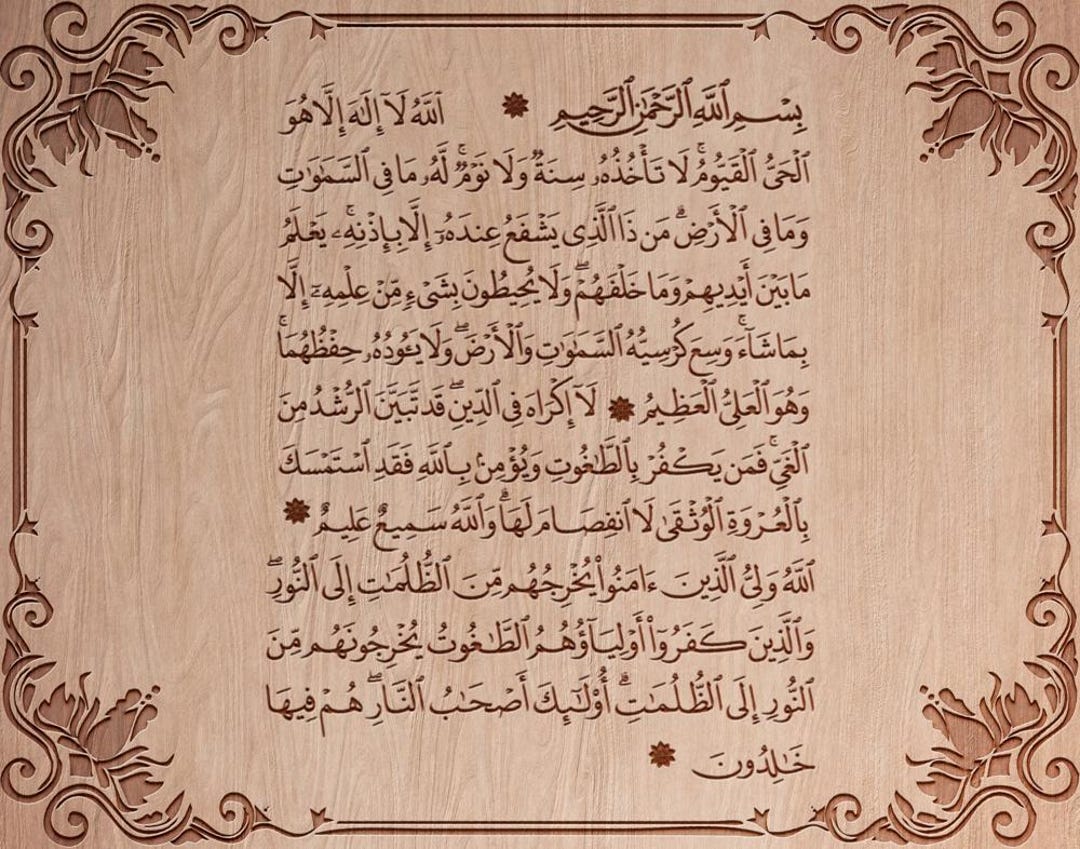 بِسْمِ ٱللَّهِ ٱلرَّحْمَٰنِ ٱلرَّحِيمِ ۞ ٱللَّهُ لَآ إِلَٰهَ إِلَّا هُوَ
ٱلْحَىُّ ٱلْقَيُّومُ ۚ لَا تَأْخُذُهُۥ سِنَةٌ وَلَا نَوْمٌ ۚ لَّهُۥ مَا فِى ٱلسَّمَٰوَٰتِ
وَمَا فِى ٱلْأَرْضِ ۗ مَن ذَا ٱلَّذِى يَشْفَعُ عِندَهُۥٓ إِلَّا بِإِذْنِهِۦ ۚ يَعْلَمُ
مَا بَيْنَ أَيْدِيهِمْ وَمَا خَلْفَهُمْ ۖ وَلَا يُحِيطُونَ بِشَىْءٍ مِّنْ عِلْمِهِۦٓ إِلَّا
بِمَا شَآءَ ۚ وَسِعَ كُرْسِيُّهُ ٱلسَّمَٰوَٰتِ وَٱلْأَرْضَ ۖ وَلَا يَـُٔودُهُۥ حِفْظُهُمَا ۚ
وَهُوَ ٱلْعَلِىُّ ٱلْعَظِيمُ ۞ لَآ إِكْرَاهَ فِى ٱلدِّينِ ۖ قَد تَّبَيَّنَ ٱلرُّشْدُ مِنَ
ٱلْغَىِّ ۚ فَمَن يَكْفُرْ بِٱلطَّٰغُوتِ وَيُؤْمِنۢ بِٱللَّهِ فَقَدِ ٱسْتَمْسَكَ
بِٱلْعُرْوَةِ ٱلْوُثْقَىٰ لَا ٱنفِصَامَ لَهَا ۗ وَٱللَّهُ سَمِيعٌ عَلِيمٌ ۞
ٱللَّهُ وَلِىُّ ٱلَّذِينَ ءَامَنُوا۟ يُخْرِجُهُم مِّنَ ٱلظُّلُمَٰتِ إِلَى ٱلنُّورِ ۖ
وَٱلَّذِينَ كَفَرُوٓا۟ أَوْلِيَآؤُهُمُ ٱلطَّٰغُوتُ يُخْرِجُونَهُم مِّنَ
ٱلنُّورِ إِلَى ٱلظُّلُمَٰتِ ۗ أُو۟لَٰٓئِكَ أَصْحَٰبُ ٱلنَّارِ ۖ هُمْ فِيهَا
خَٰلِدُونَ ۞